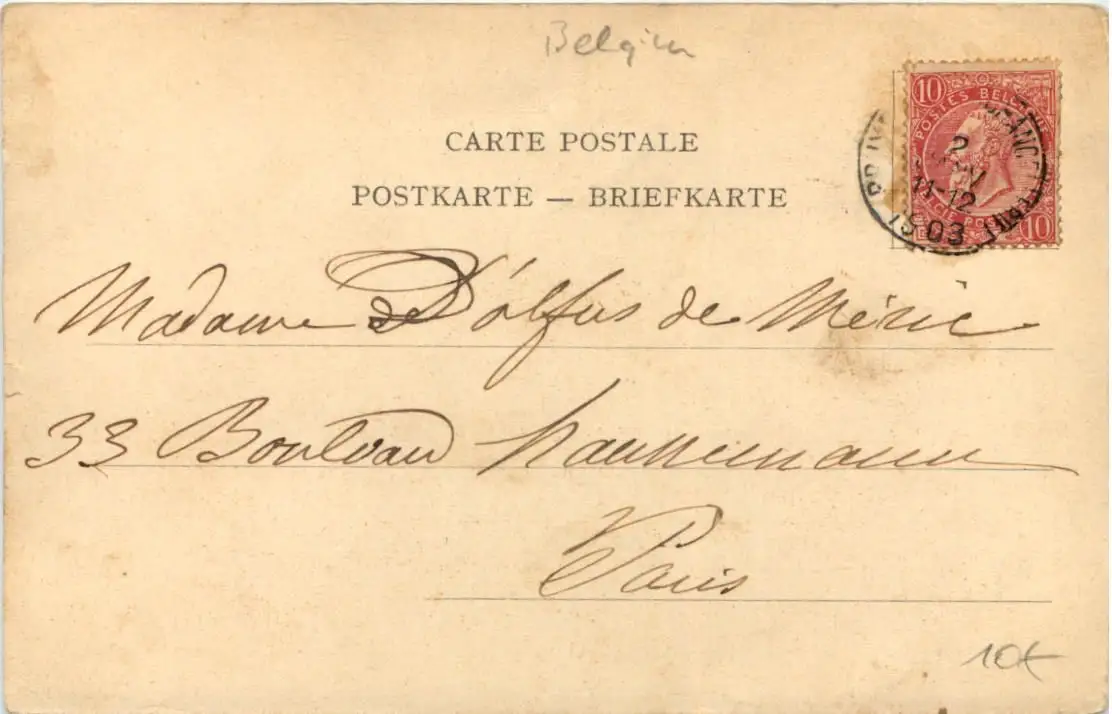 Belgium
CARTE POSTALE
POSTKARTE — BRIEFKARTE
10 10
POSTES BELG
2
11-12
03
Madame Dolfus de Méric
33 Boulevard Haussmann
Paris
10€